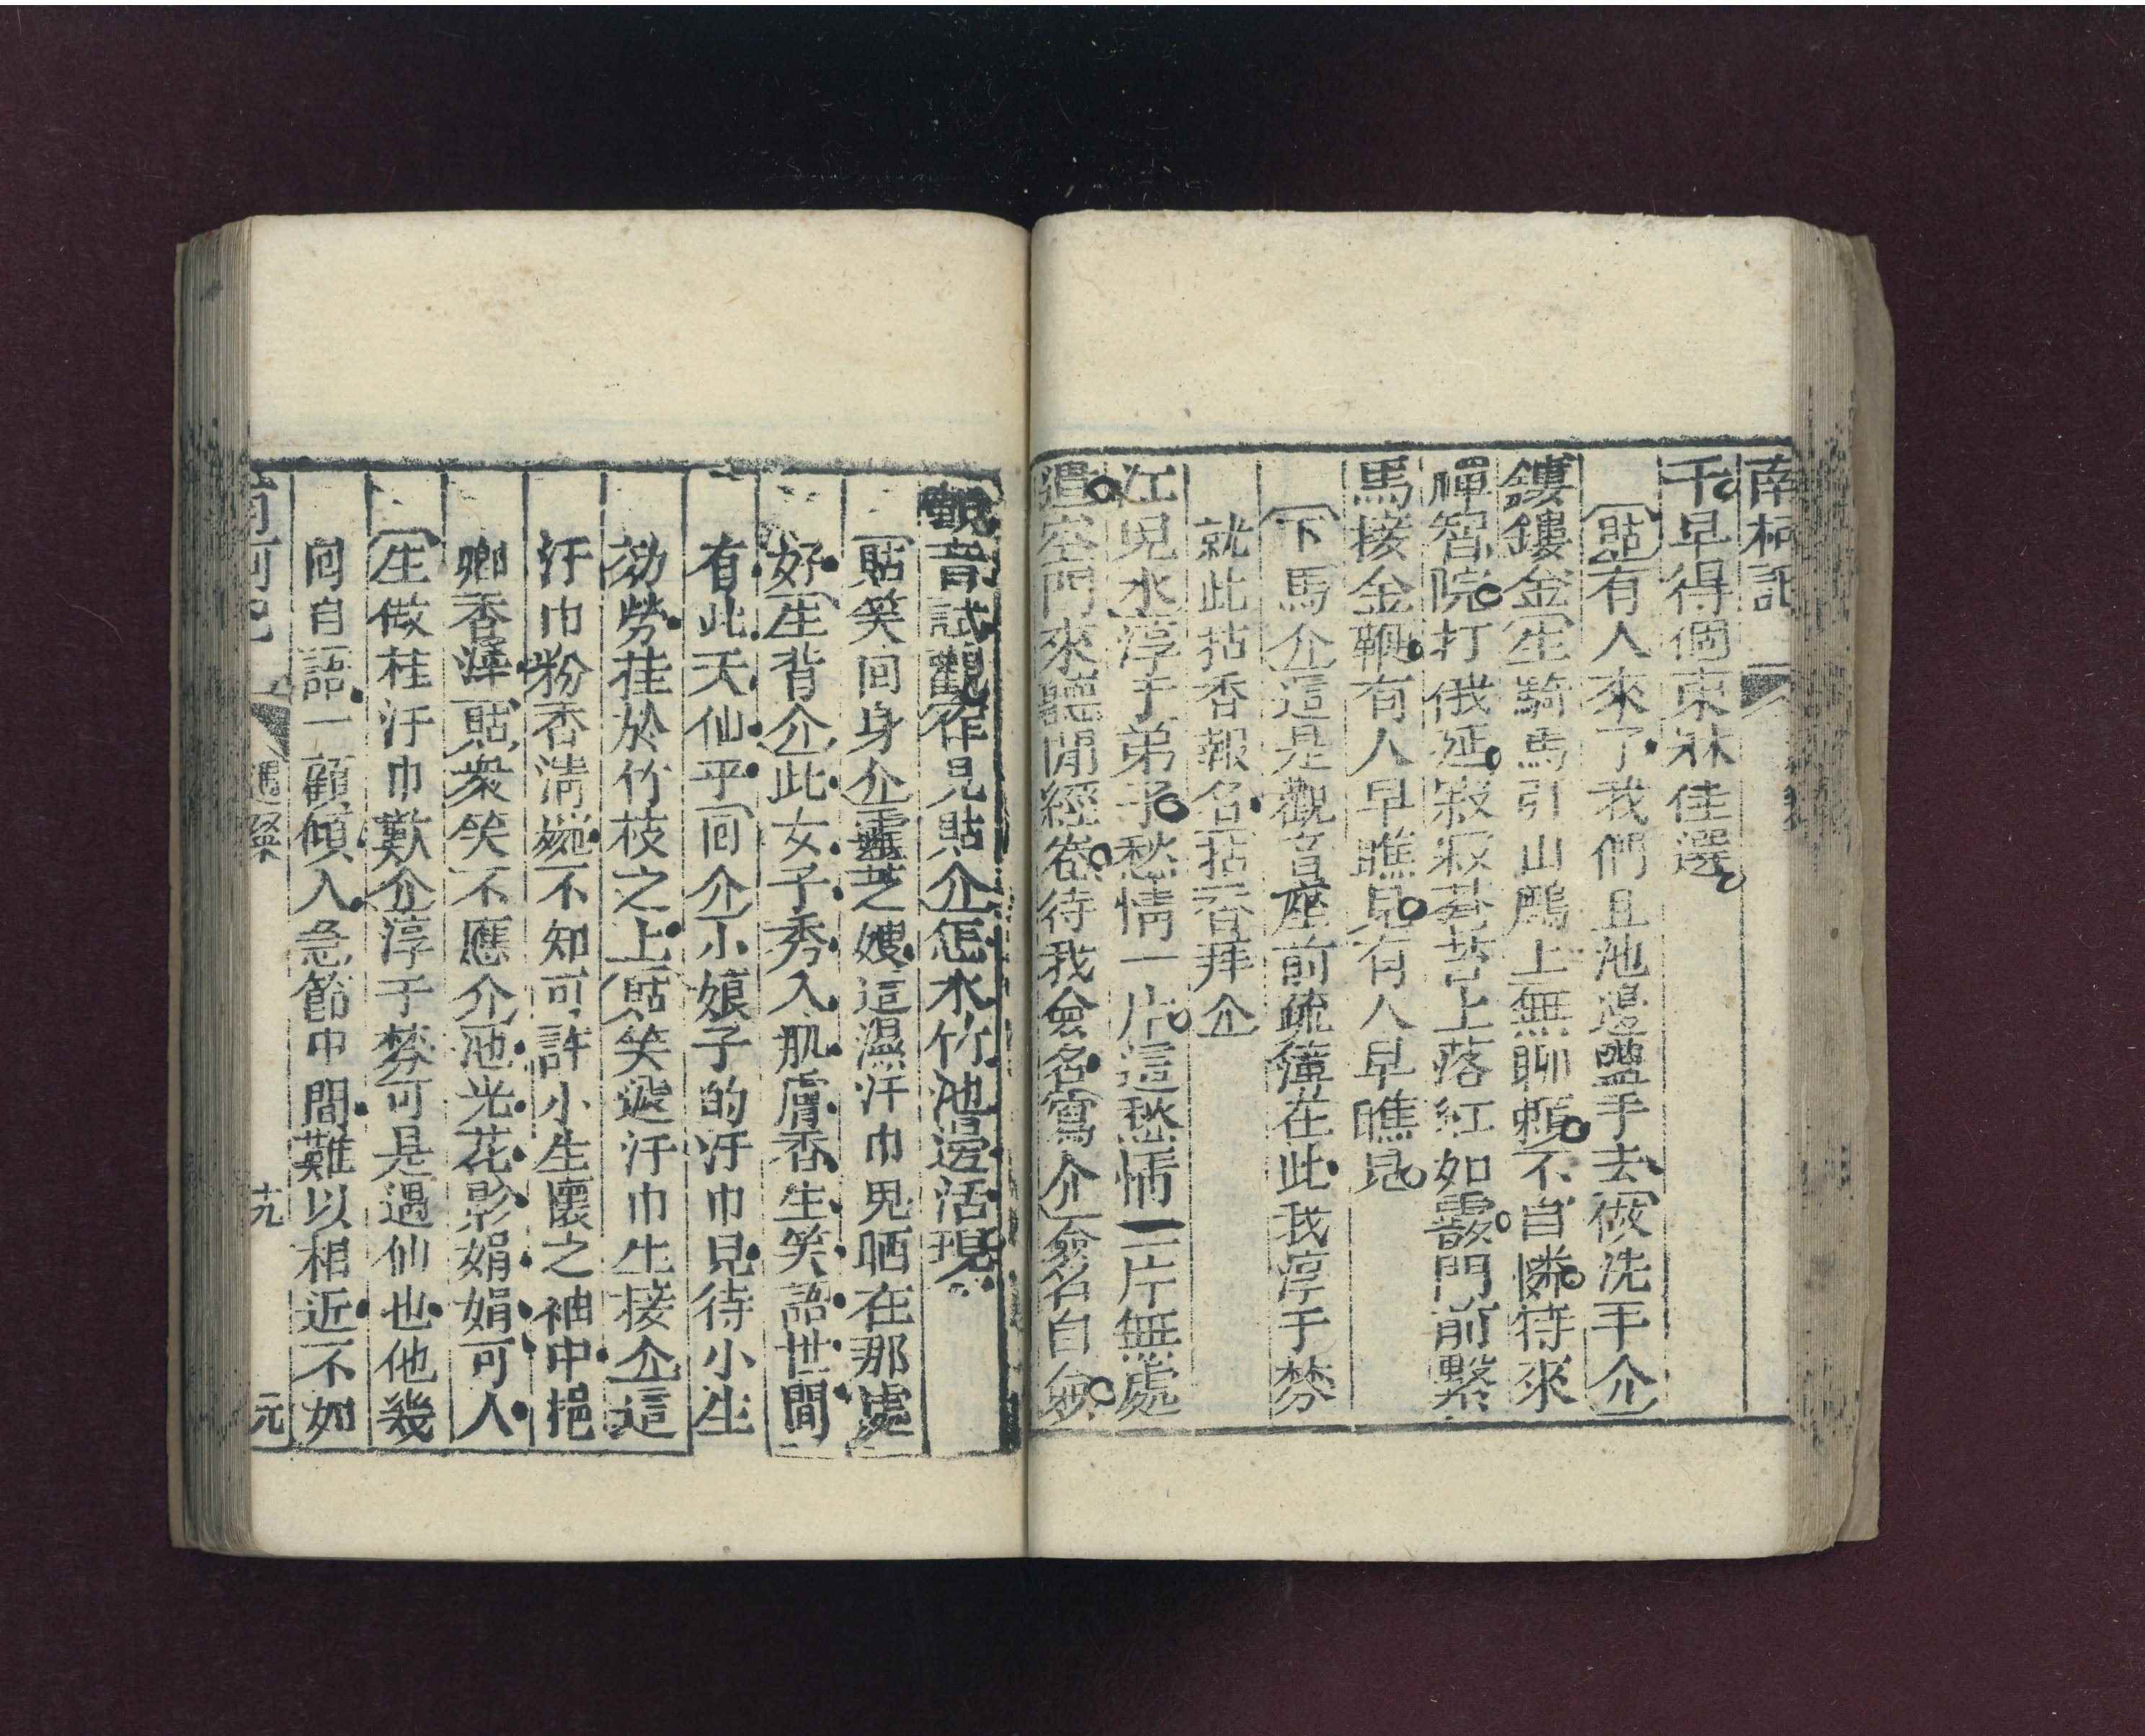 南柯記
千早得個東牀佳選
貼有人來了我們且池邊盥手去做洗手介
鏤鏤金生騎馬引山鷓上無聊賴不自憐待來
禪智院打俄延寂寂蒼苔上落紅如霰門前繫
馬接金鞭有人早瞧見有人早瞧見
下馬介這是觀音座前疏簿在此我淳于棼
就此拈香報名拈香拜介
江兒水淳于弟子愁情一片這愁情一片無處
遣空門來聽閒經卷待我僉名寫介僉名自僉
觀音試觀作見貼介怎水竹池邊活現
貼笑回身介靈芝嫂這濕汗巾兒晒在那處
好生背介此女子秀入肌膚香生笑語世間
有此天仙乎回介小娘子的汗巾見待小生
効勞挂於竹枝之上貼笑遞汗巾生接介這
汗巾粉香清婉不知可許小生懷之袖中挹
卿香澤貼衆笑不應介池光花影娟娟可人
生做挂汗巾歎介淳于棼可是遇仙也他幾
囘自語一顧傾人急節中間難以相近不如
南柯記 遇粲 十九 元